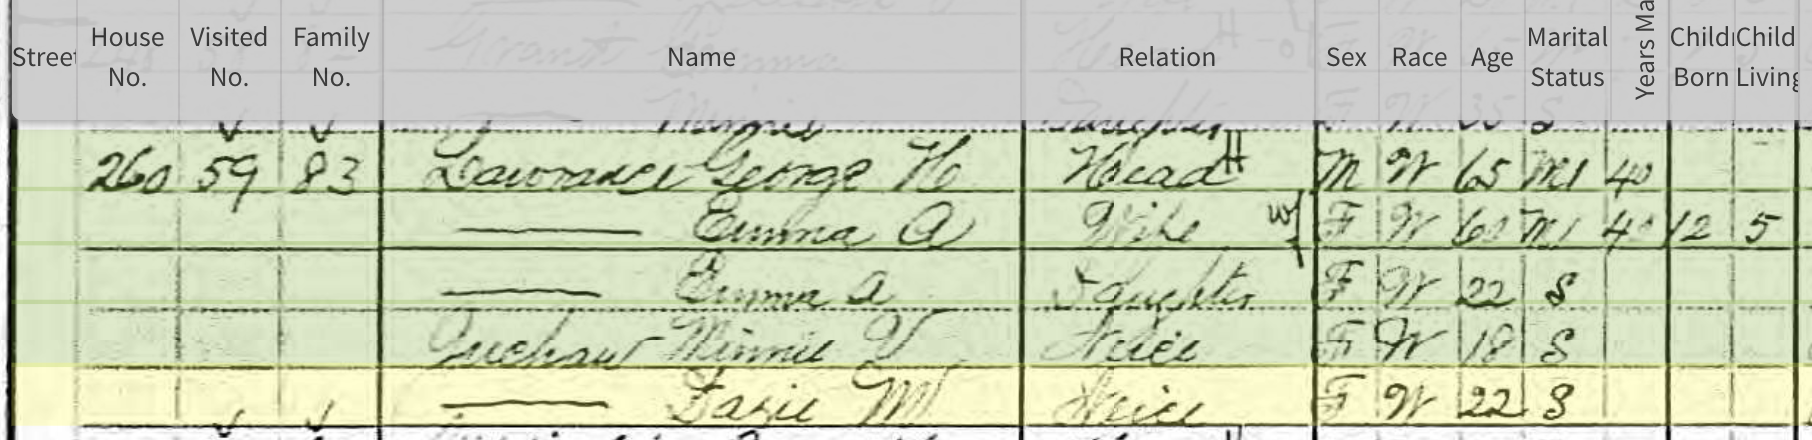 Street House No. Visited No. Family No. Name Relation Sex Race Age Marital Status Years Ma Child Born Child Living
Minnie Daughter F W 35 S
260 59 83 Lawrance George H Head H M W 65 M1 40
— Emma A Wife wf F W 60 M1 40 12 5
— Emma A Daughter F W 22 S
Minnie V Niece F W 18 S
— M Niece F W 22 S